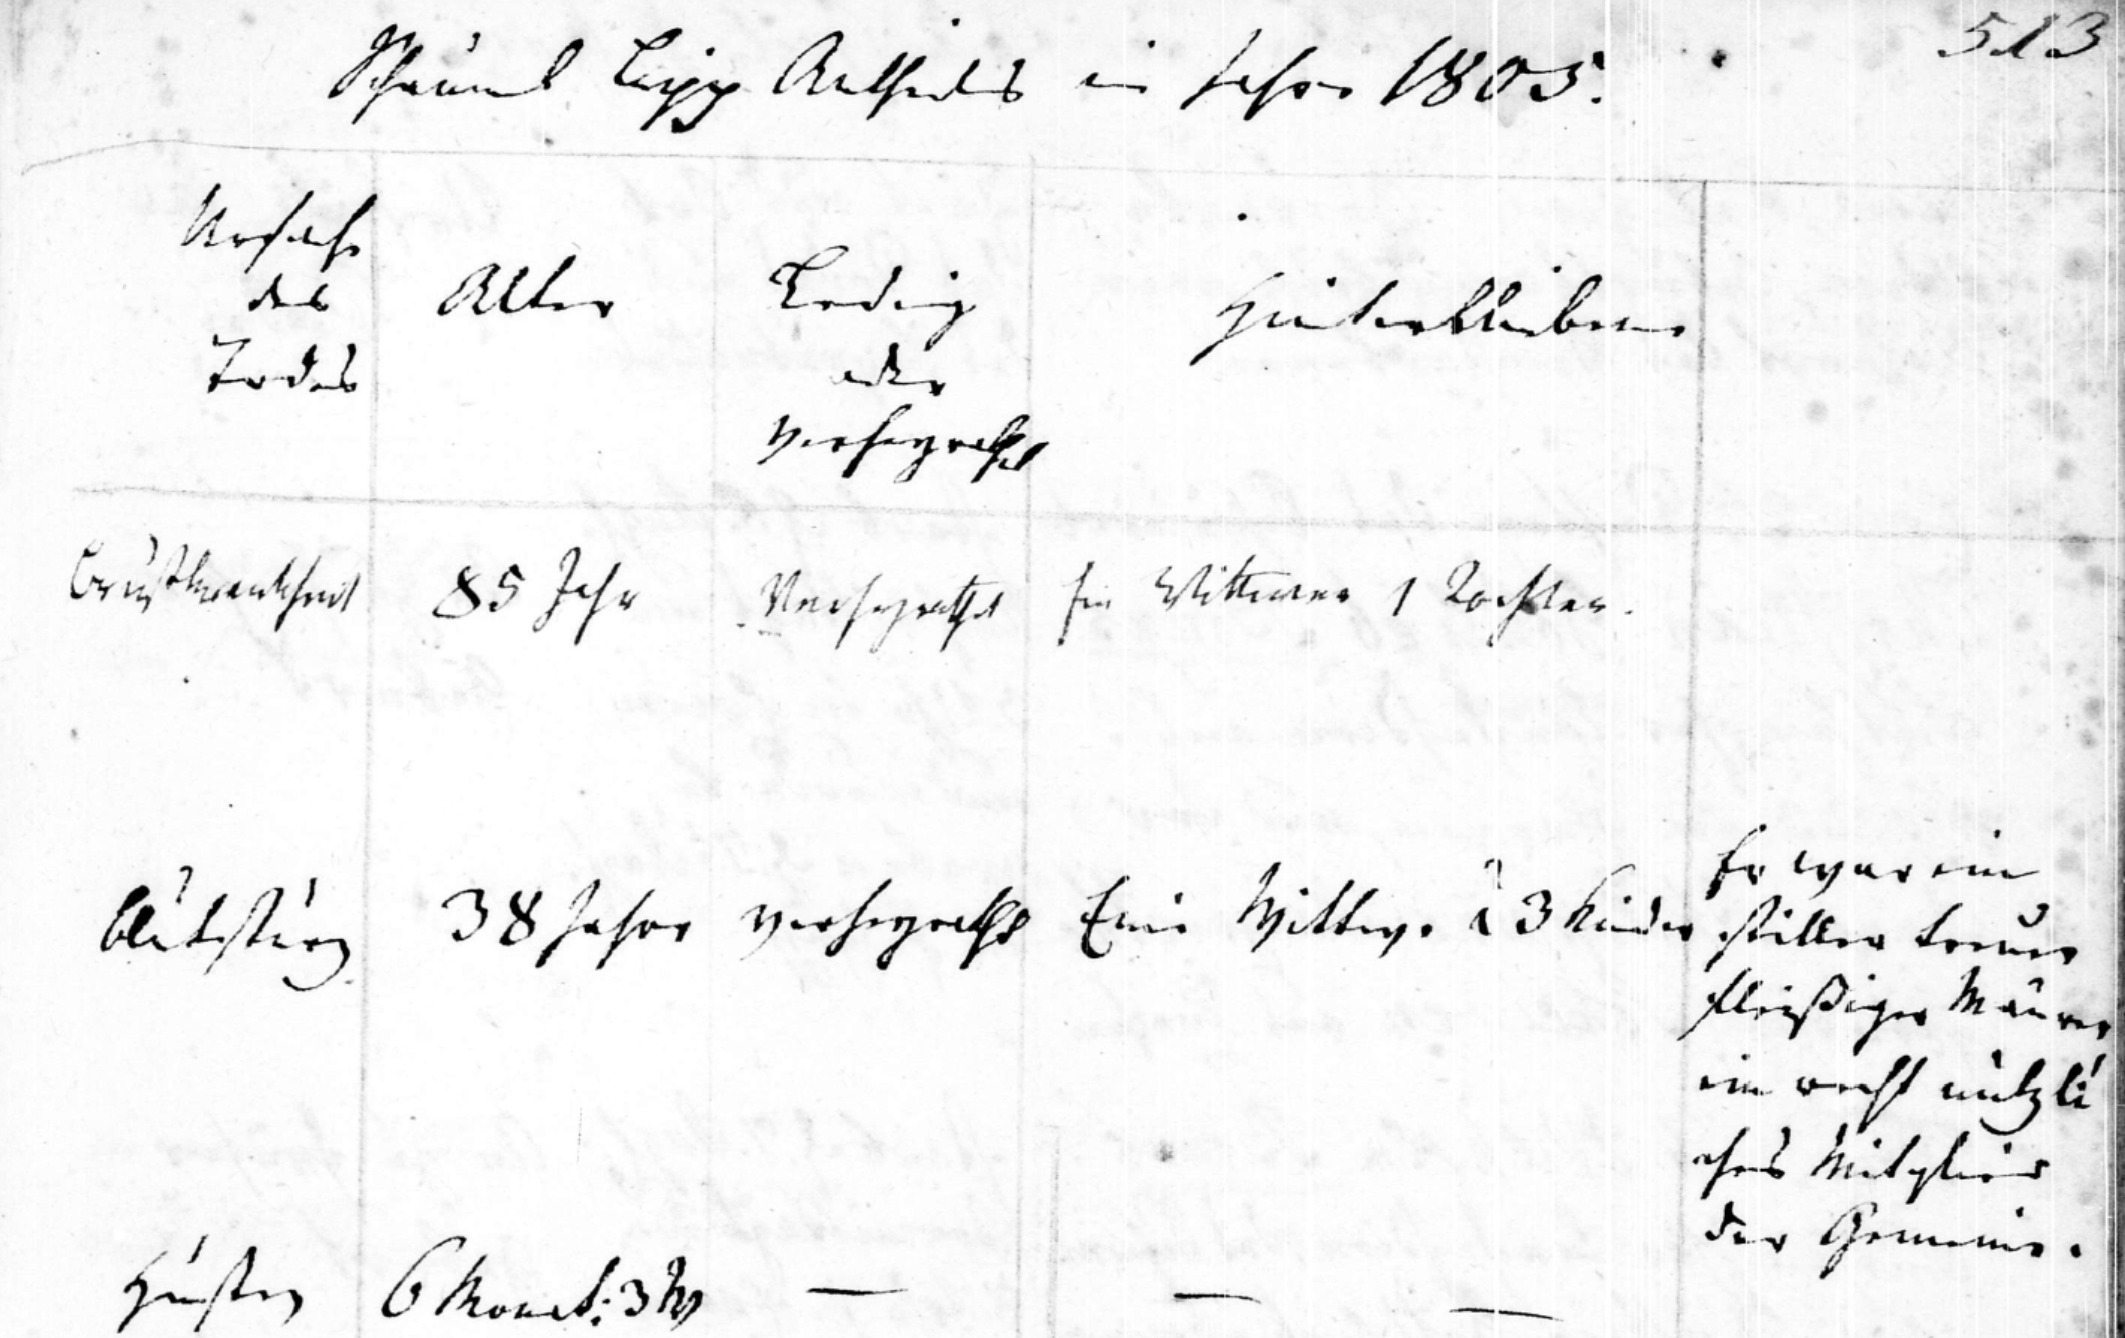 513
Lipp im Jahre 1805.
Ursache
des
Todes
Alter
Ledig
oder
verheyrathet
Hinterbliebene
Brustkrankheit
85 Jahr
Verheyrathet
Ein Wittwer 1 Tochter.
Blutsturz
38 Jahre
verheyrathet
Eine Wittwe u 3 Kinder
Er war ein
stiller treuer
fleißiger Maurer
ein recht nützli
ches Mitglied
der Gemeine.
Husten
6 Monat: 3 W
— — —